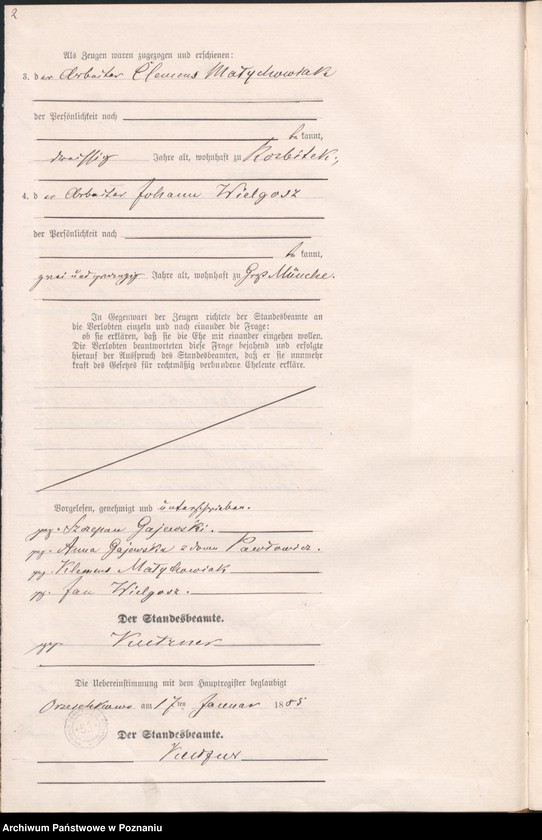 2
Als Zeugen waren zugezogen und erschienen:
3. der Arbeiter Clemens Matychowiak
der Persönlichkeit nach
be kannt,
dreißig Jahre alt, wohnhaft zu
4. der Arbeiter Johann Wielgosz
der Persönlichkeit nach
be kannt,
zwei und zwanzig Jahre alt, wohnhaft zu Groß Münche.
In Gegenwart der Zeugen richtete der Standesbeamte an
die Verlobten einzeln und nach einander die Frage:
ob sie erklären, daß sie die Ehe mit einander eingehen wollen.
Die Verlobten beantworteten diese Frage bejahend und erfolgte
hierauf der Ausspruch des Standesbeamten, daß er sie nunmehr
kraft des Gesetzes für rechtmäßig verbundene Eheleute erkläre.
Vorgelesen, genehmigt und unterschrieben.
gez. Szczepan Gajewski.
gez. Anna Gajewska z domu Pawłowicz.
gez. Klemens Matychowiak
gez. Jan Wielgosz.
Der Standesbeamte.
gez.
Die Uebereinstimmung mit dem Hauptregister beglaubigt
Orzeschkowo am 17ten Januar 1885
Der Standesbeamte.
Archiwum Państwowe w Poznaniu